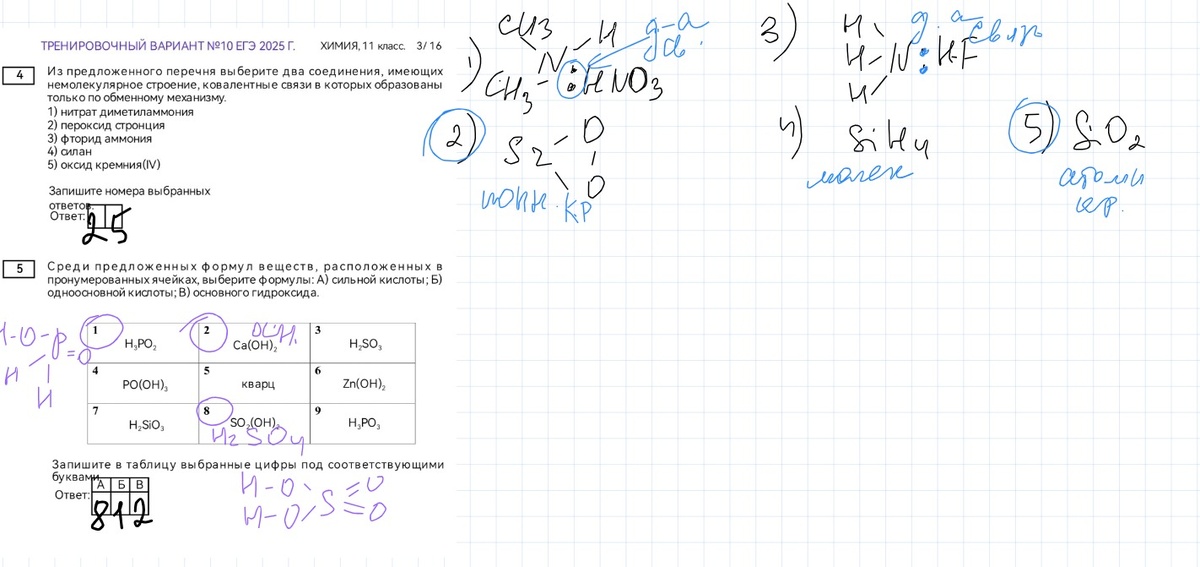 ТРЕНИРОВОЧНЫЙ ВАРИАНТ №10 ЕГЭ 2025 Г. ХИМИЯ, 11 класс. 3/ 16
4
Из предложенного перечня выберите два соединения, имеющих
немолекулярное строение, ковалентные связи в которых образованы
только по обменному механизму.
1) нитрат диметиламмония
2) пероксид стронция
3) фторид аммония
4) силан
5) оксид кремния(IV)
Запишите номера выбранных
ответов.
Ответ: 25
5
Среди предложенных формул веществ, расположенных в
пронумерованных ячейках, выберите формулы: А) сильной кислоты; Б)
одноосновной кислоты; В) основного гидроксида.
1 H₃PO₂
2 осн. Ca(OH)₂
3 H₂SO₃
4 PO(OH)₃
5 кварц
6 Zn(OH)₂
7 H₂SiO₃
8 SO₂(OH)₂
H₂SO₄
9 H₃PO₃
H-O-P=O
H H
Запишите в таблицу выбранные цифры под соответствующими
буквами.
А Б В
Ответ: 8 1 2
H-O
H-O S =O
=O
1) CH3 N H
CH3 : HNO3
д-а
св.
2) Sr O
O
ионн. кр
3) H
H-N : H-F
H
д. а связь
4) SiH4
молек
5) SiO2
атомн
кр.